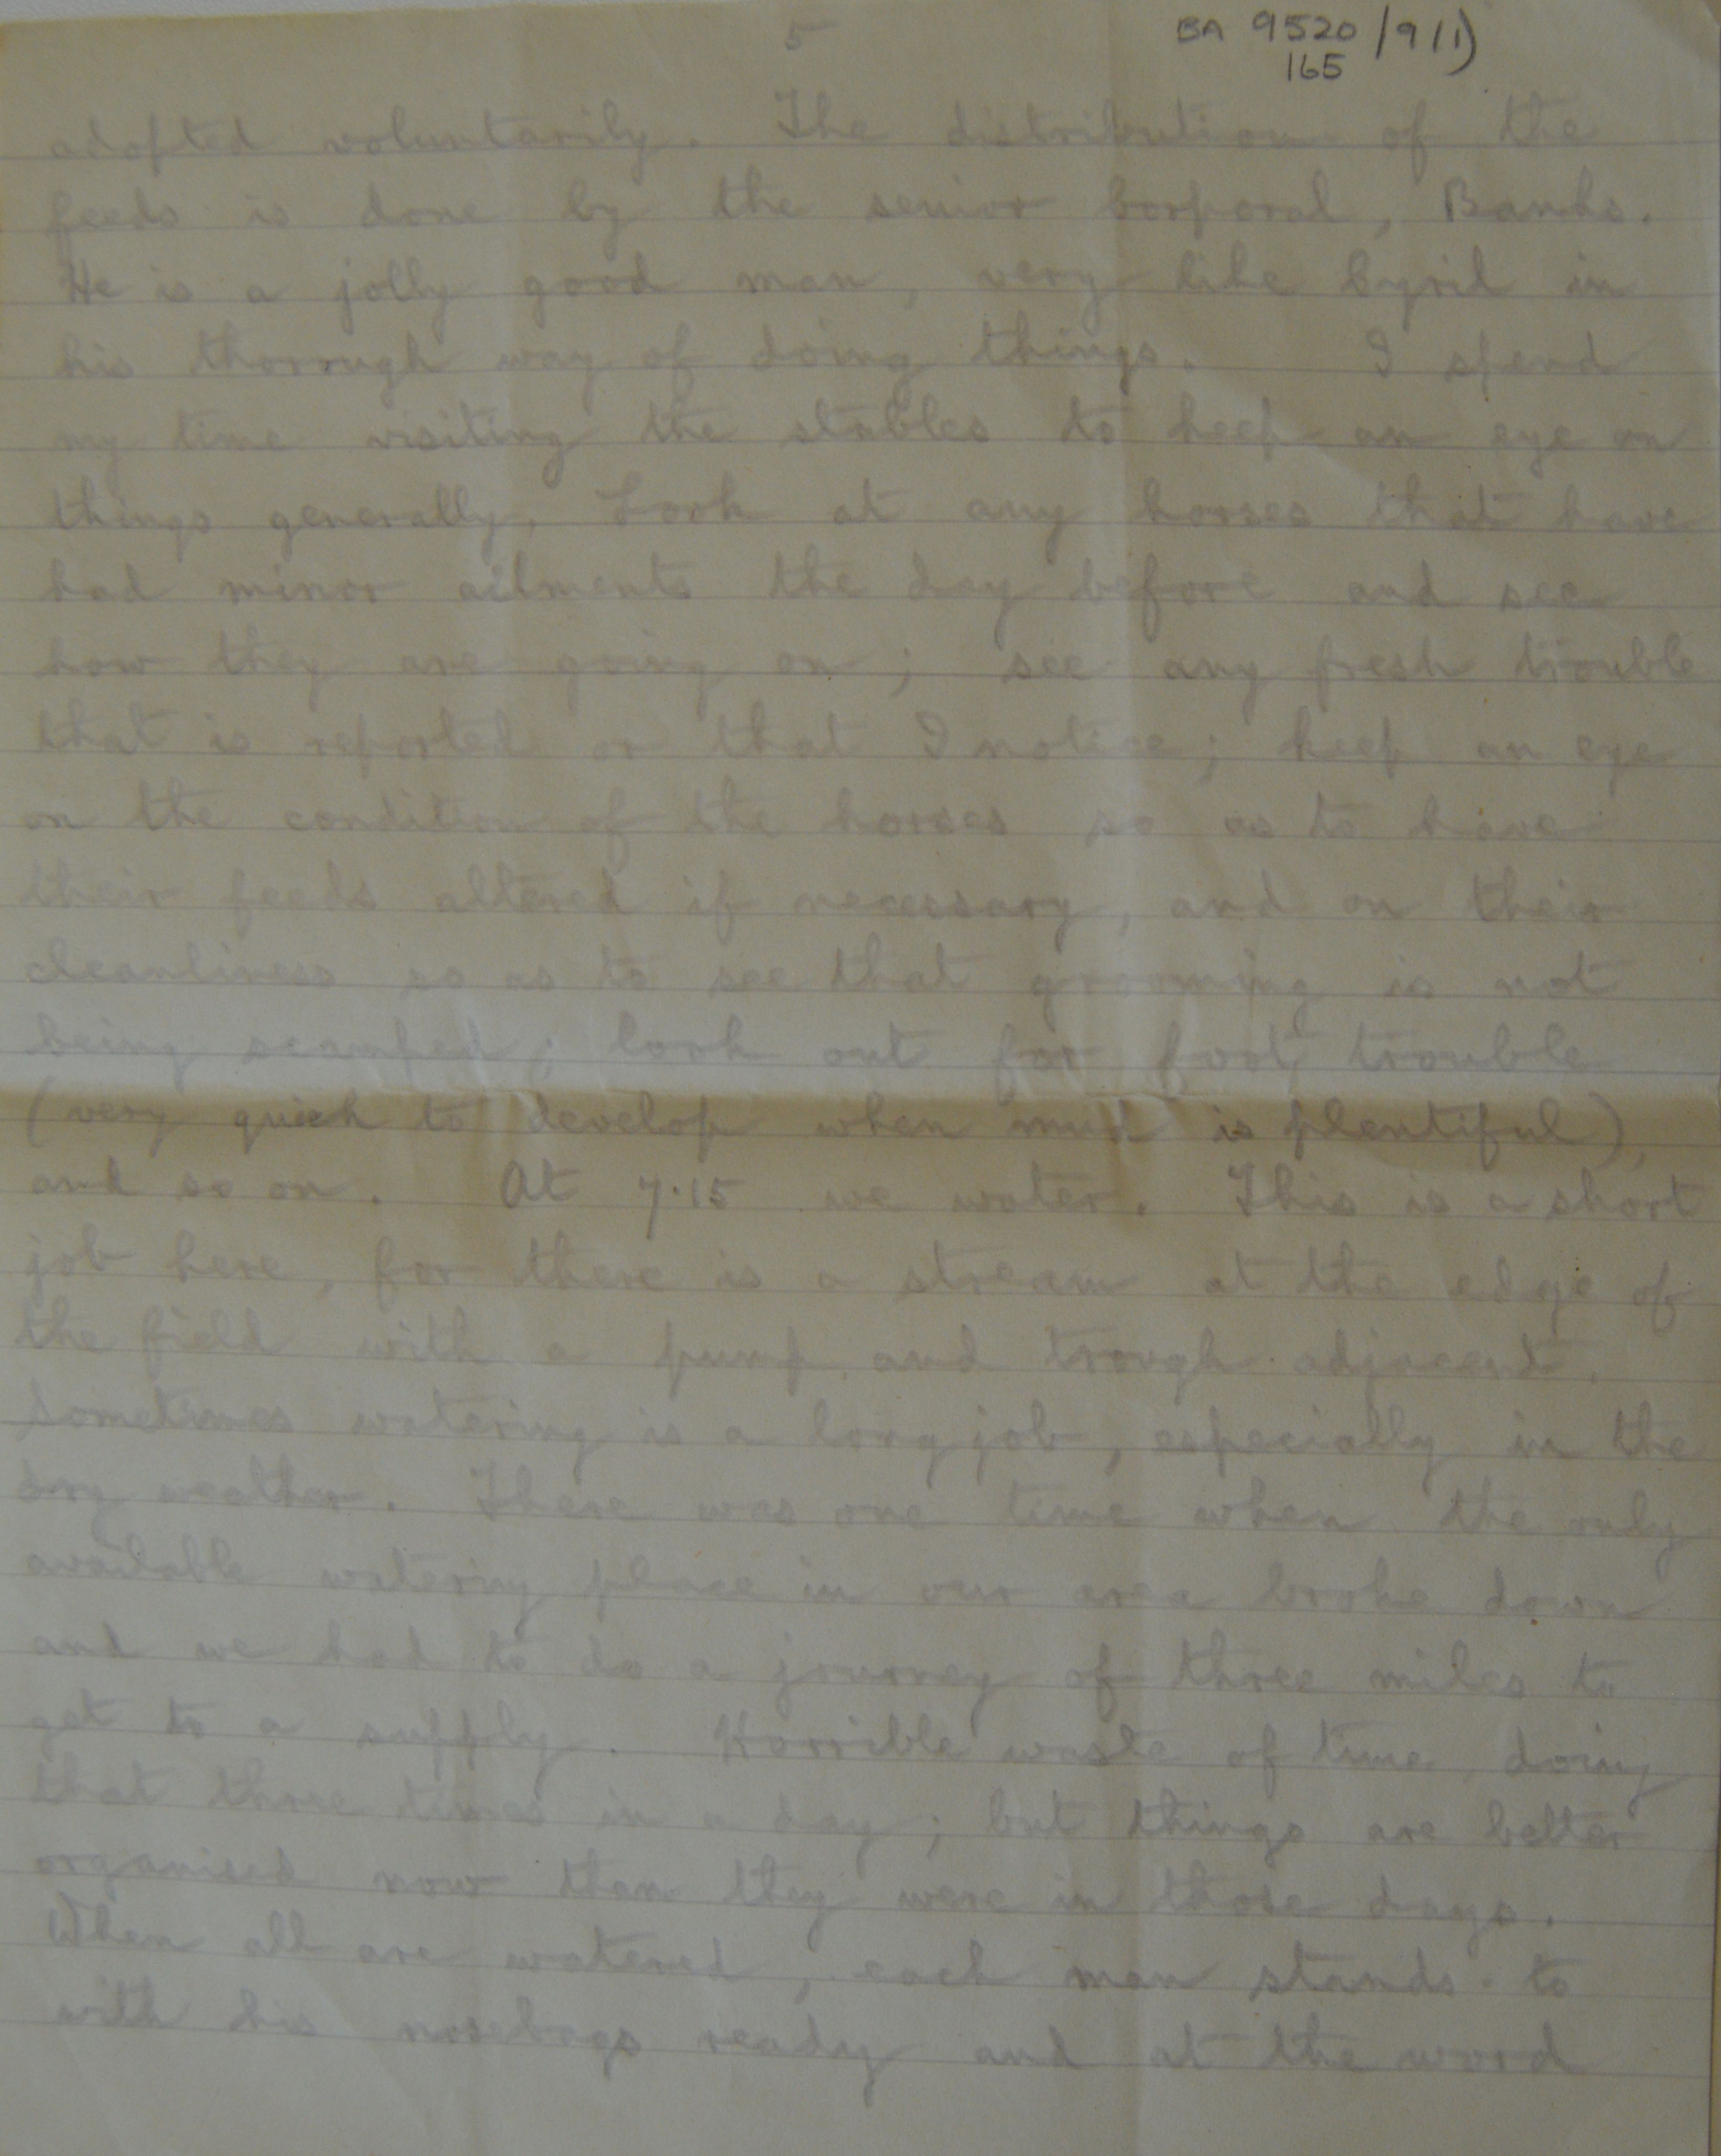 5
BA 9520/9(1)
165
adopted voluntarily. The distribution of the
feeds is done by the senior Corporal, Banks.
He is a jolly good man, very like Cyril in
his thorough way of doing things. I spend
my time visiting the stables to keep an eye on
things generally. Look at any horses that have
had minor ailments the day before and see
how they are going on; see any fresh trouble
that is reported or that I notice; keep an eye
on the condition of the horses so as to have
their feeds altered if necessary, and on their
cleanliness so as to see that grooming is not
being scamped; look out for foot trouble
(very quick to develop when mud is plentiful),
and so on. At 7.15 we water. This is a short
job here, for there is a stream at the edge of
the field with a pump and trough adjacent.
Sometimes watering is a long job, especially in the
dry weather. There was one time when the only
available watering place in our area broke down
and we had to do a journey of three miles to
get to a supply. Horrible waste of time, doing
that three times in a day; but things are better
organised now than they were in those days.
When all are watered, each man stands to
with his nosebags ready and at the word